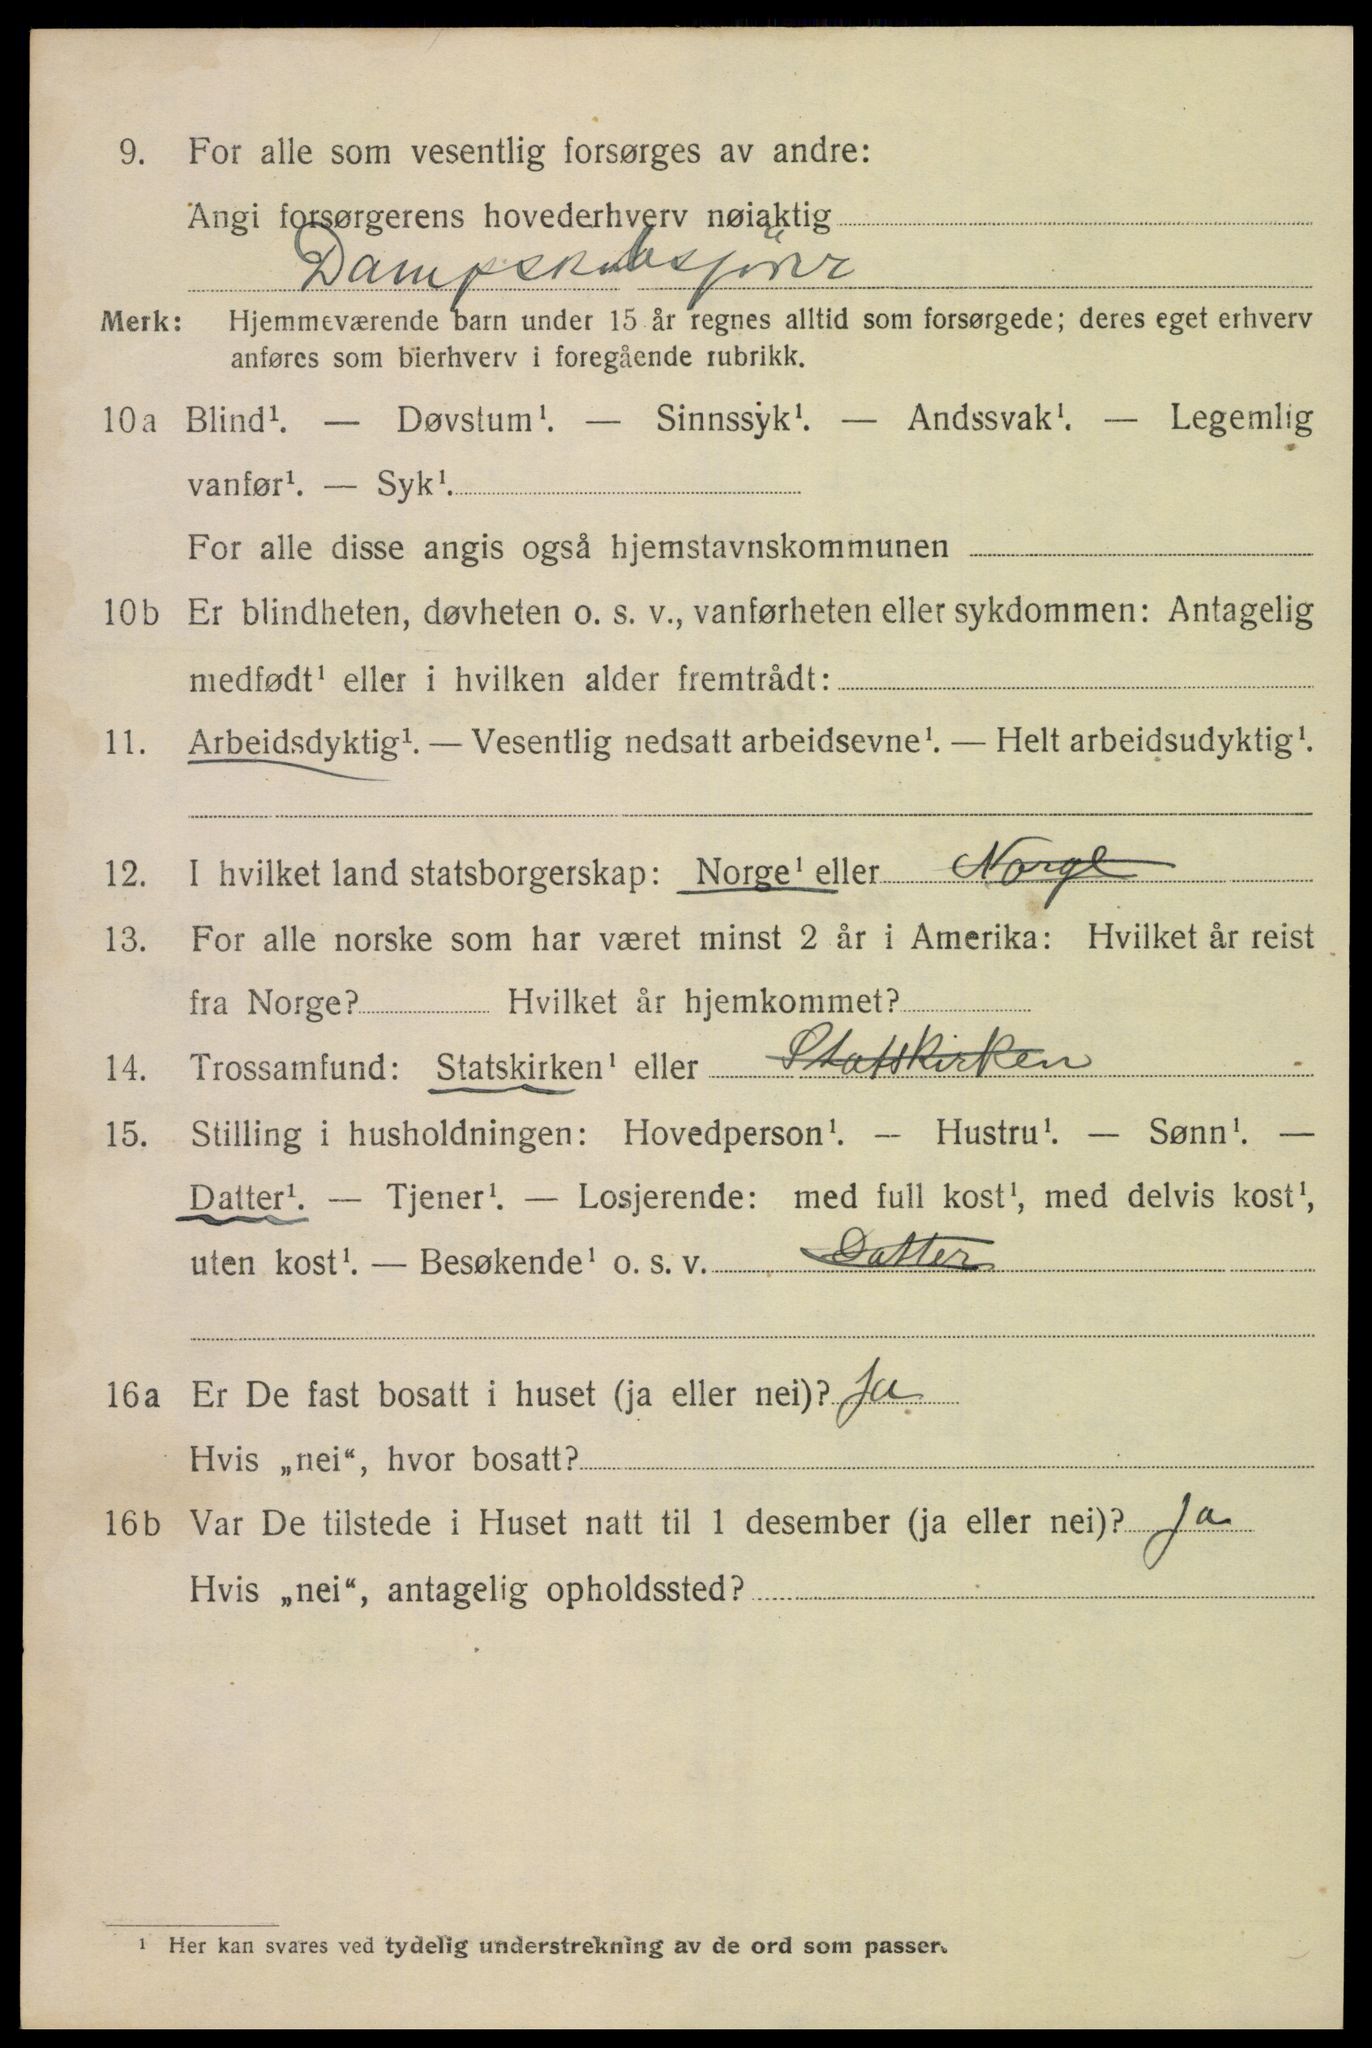 9. For alle som vesentlig forsørges av andre:
Angi forsørgerens hovederhverv nøiaktig
Dampskibsfører
Merk: Hjemmeværende barn under 15 år regnes alltid som forsørgede; deres eget erhverv
anføres som bierhverv i foregående rubrikk.
10a Blind¹. — Døvstum¹. — Sinnssyk¹. — Andssvak¹. — Legemlig
vanfør¹. — Syk¹.
For alle disse angis også hjemstavnskommunen
10b Er blindheten, døvheten o. s. v., vanførheten eller sykdommen: Antagelig
medfødt¹ eller i hvilken alder fremtrådt:
11. Arbeidsdyktig¹. — Vesentlig nedsatt arbeidsevne¹. — Helt arbeidsudyktig¹.
12. I hvilket land statsborgerskap: Norge¹ eller Norge
13. For alle norske som har været minst 2 år i Amerika: Hvilket år reist
fra Norge? Hvilket år hjemkommet?
14. Trossamfund: Statskirken¹ eller Statskirken
15. Stilling i husholdningen: Hovedperson¹. — Hustru¹. — Sønn¹. —
Datter¹. — Tjener¹. — Losjerende: med full kost¹, med delvis kost¹,
uten kost¹. — Besøkende¹ o. s. v. Datter
16a Er De fast bosatt i huset (ja eller nei)? Ja
Hvis „nei“, hvor bosatt?
16b Var De tilstede i Huset natt til 1 desember (ja eller nei)? Ja
Hvis „nei“, antagelig opholdssted?
¹ Her kan svares ved tydelig understrekning av de ord som passer.